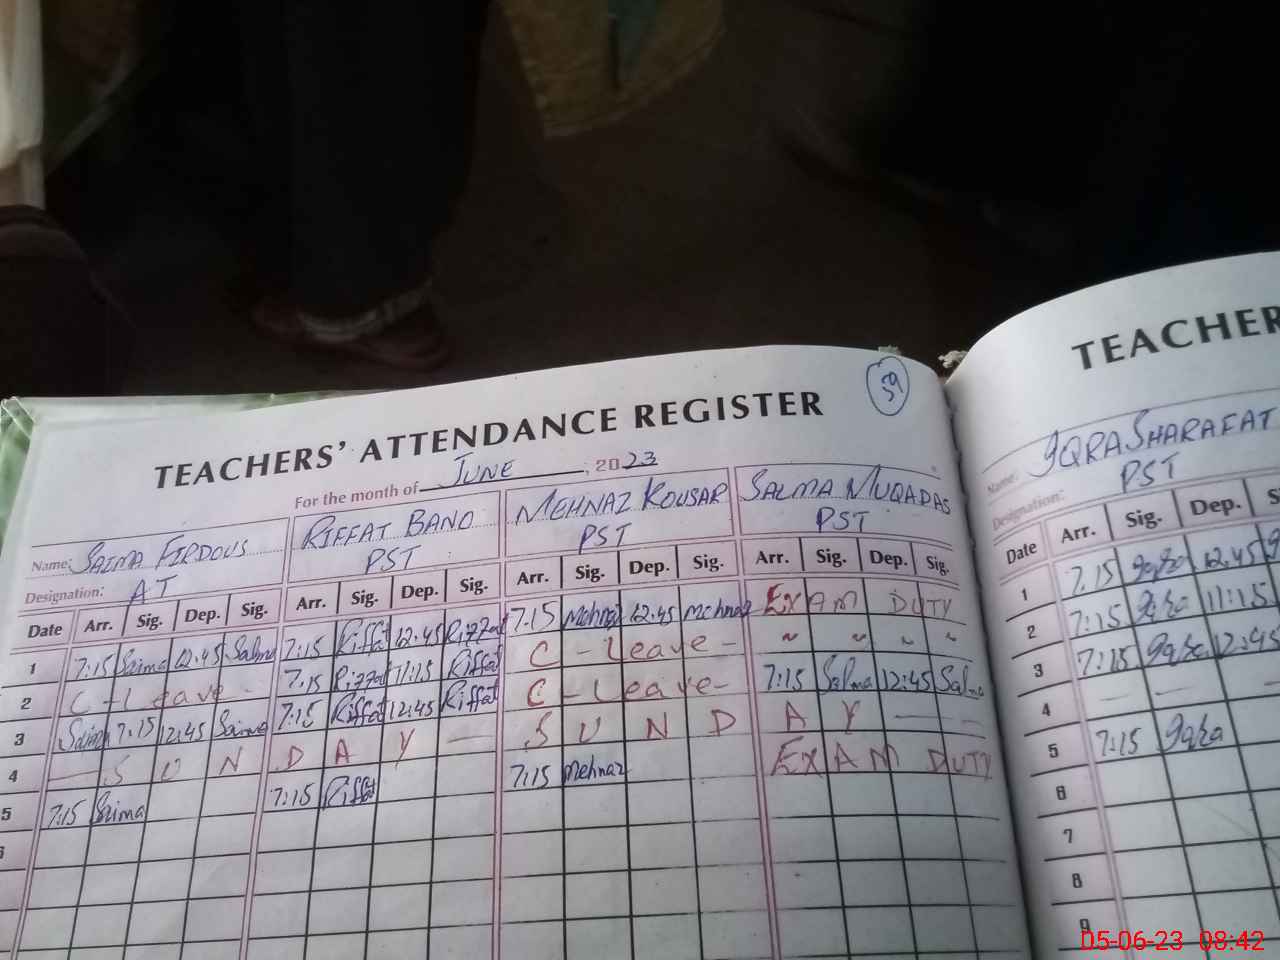 TEACHERS' ATTENDANCE REGISTER
59
For the month of JUNE, 2023
Name: SAIMA FIRDOUS RIFFAT BANO MEHNAZ KOUSAR SALMA MUQADAS
Designation: AT PST PST PST
Date Arr. Sig. Dep. Sig. Arr. Sig. Dep. Sig. Arr. Sig. Dep. Sig. Arr. Sig. Dep. Sig.
1 7:15 Saima 12:45 Saima 7:15 Riffat 12:45 Riffat 7.15 Mehnaz 12:45 Mehnaz EXAM DUTY
2 C - Leave - 7.15 Riffat 11:15 Riffat C - Leave - " " " "
3 Saima 7:15 12:45 Saima 7:15 Riffat 12:45 Riffat C - Leave - 7:15 Salma 12:45 Salma
4 — S U N D A Y — S U N D A Y — —
5 7:15 Saima 7:15 Riffat 7:15 Mehnaz EXAM DUTY
TEACHER
Name: IQRA SHARAFAT
Designation: PST
Date Arr. Sig. Dep. S
1 7.15 Iqra 12.45
2 7:15 Iqra 11:15
3 7:15 Iqra 12:45
4 — — —
5 7:15 Iqra
6
7
8
9
05-06-23 08:42